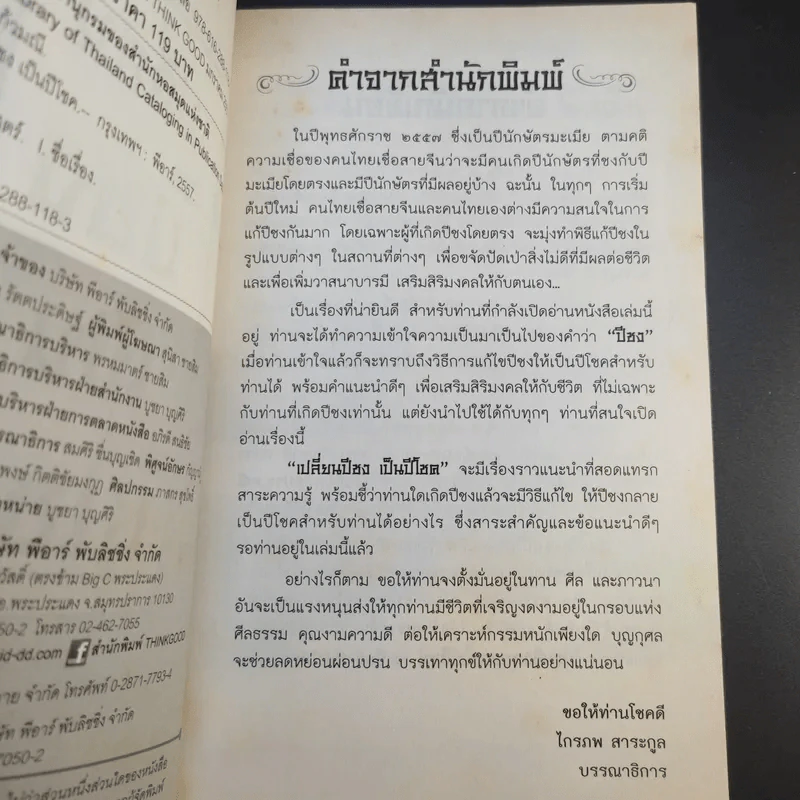 THINK GOOD
ราคา 119 บาท
บรรณานุกรมของสำนักหอสมุดแห่งชาติ
Library of Thailand Cataloging in Publication
เป็นปีโชค.-- กรุงเทพฯ : พีอาร์, 2557.
I. ชื่อเรื่อง.
288-118-3
เจ้าของ บริษัท พีอาร์ พับลิชชิ่ง จำกัด
รัตตประดิษฐ์ ผู้พิมพ์ผู้โฆษณา สุนิสา ชายสิม
บรรณาธิการบริหาร พรหมมาตร์ ชายสิม
บรรณาธิการบริหารฝ่ายสำนักงาน บูชยา บุญศิริ
บริหารฝ่ายการตลาดหนังสือ
บรรณาธิการ สมศิริ ชื่นบุญเชิด พิสูจน์อักษร
พงษ์ กิตติชัยมงกุฎ ศิลปกรรม
จำหน่าย บูชยา บุญศิริ
บริษัท พีอาร์ พับลิชชิ่ง จำกัด
สวัสดิ์ (ตรงข้าม Big C พระประแดง)
อ.พระประแดง จ.สมุทรปราการ 10130
050-2 โทรสาร 02-462-7055
id-dd.com f สำนักพิมพ์ THINKGOOD
จำกัด โทรศัพท์ 0-2871-7793-4
บริษัท พีอาร์ พับลิชชิ่ง จำกัด
7050-2
ส่วนหนึ่งส่วนใดของหนังสือ
คำจากสำนักพิมพ์
ในปีพุทธศักราช ๒๕๕๗ ซึ่งเป็นปีนักษัตรมะเมีย ตามคติ
ความเชื่อของคนไทยเชื้อสายจีนว่าจะมีคนเกิดปีนักษัตรที่ชงกับปี
มะเมียโดยตรงและมีปีนักษัตรที่มีผลอยู่บ้าง ฉะนั้น ในทุกๆ การเริ่ม
ต้นปีใหม่ คนไทยเชื้อสายจีนและคนไทยเองต่างมีความสนใจในการ
แก้ปีชงกันมาก โดยเฉพาะผู้ที่เกิดปีชงโดยตรง จะมุ่งทำพิธีแก้ปีชงใน
รูปแบบต่างๆ ในสถานที่ต่างๆ เพื่อขจัดปัดเป่าสิ่งไม่ดีที่มีผลต่อชีวิต
และเพื่อเพิ่มวาสนาบารมี เสริมสิริมงคลให้กับตนเอง...
เป็นเรื่องที่น่ายินดี สำหรับท่านที่กำลังเปิดอ่านหนังสือเล่มนี้
อยู่ ท่านจะได้ทำความเข้าใจความเป็นมาเป็นไปของคำว่า “ปีชง”
เมื่อท่านเข้าใจแล้วก็จะทราบถึงวิธีการแก้ไขปีชงให้เป็นปีโชคสำหรับ
ท่านได้ พร้อมคำแนะนำดีๆ เพื่อเสริมสิริมงคลให้กับชีวิต ที่ไม่เฉพาะ
กับท่านที่เกิดปีชงเท่านั้น แต่ยังนำไปใช้ได้กับทุกๆ ท่านที่สนใจเปิด
อ่านเรื่องนี้
“เปลี่ยนปีชง เป็นปีโชค” จะมีเรื่องราวแนะนำที่สอดแทรก
สาระความรู้ พร้อมชี้ว่าท่านใดเกิดปีชงแล้วจะมีวิธีแก้ไข ให้ปีชงกลาย
เป็นปีโชคสำหรับท่านได้อย่างไร ซึ่งสาระสำคัญและข้อแนะนำดีๆ
รอท่านอยู่ในเล่มนี้แล้ว
อย่างไรก็ตาม ขอให้ท่านจงตั้งมั่นอยู่ในทาน ศีล และภาวนา
อันจะเป็นแรงหนุนส่งให้ทุกท่านมีชีวิตที่เจริญงดงามอยู่ในกรอบแห่ง
ศีลธรรม คุณงามความดี ต่อให้เคราะห์กรรมหนักเพียงใด บุญกุศล
จะช่วยลดหย่อนผ่อนปรน บรรเทาทุกข์ให้กับท่านอย่างแน่นอน
ขอให้ท่านโชคดี
ไกรภพ สาระกูล
บรรณาธิการ